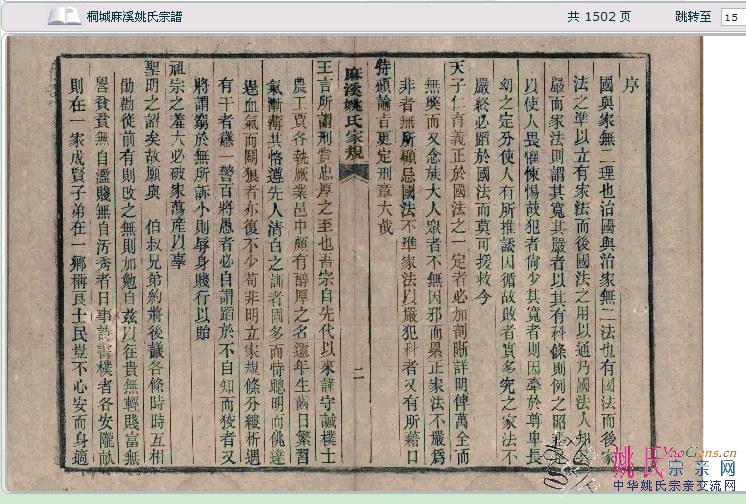 桐城麻溪姚氏宗譜
共 1502 页
跳转至 15
序
國與家無二理也治國與治家無二法也有國法而後家
法之準以立有家法而後國法之用以通乃國法人知
嚴而家法則謂其寬其嚴者以其有科條則例之昭
以使人畏懼悚惕故犯者尚少其寬者則因牽於尊卑長
幼之定分使人有所推諉因循故敗者實多究之家法不
嚴終必蹈於國法而莫可援救今
天子仁育義正於國法之一定者必加剖晰詳明俾萬全而
無獘而又念族大人眾者不無因邪而累正家法不嚴為
非者無所顧忌國法不準家法以嚴犯科者又有所藉口
特頒諭旨更定刑章大哉
麻溪姚氏家規
二
王言所謂刑賞忠厚之至也吾宗自先代以來謹守誠樸士
農工賈各執厥業邑中頗有醇厚之名邇年生齒日繁習
氣漸薄其恪遵先人清白之訓者固多而恃聰明而佻達
逞血氣而鬬狠者亦復不少苟非明立家規條分縷析遇
有干者懲一警百將愚者必自謂蹈於不自知而狡者又
將謂窮於無所訴小則辱身賤行以貽
祖宗之羞大必破家蕩產以辜
聖明之詔矣故願與 伯叔兄弟約將後議各條時時互相
勖勸從前有則改之無則加勉自茲以往貴無輕賤富無
詈貧貧無自濫賤無自汙秀者日事詩書樸者各安隴畝
則在一家成賢子弟在一鄉稱良士民豈不心安而身適
姚氏宗亲网
YaoGens.cn
中华姚氏宗亲交流网